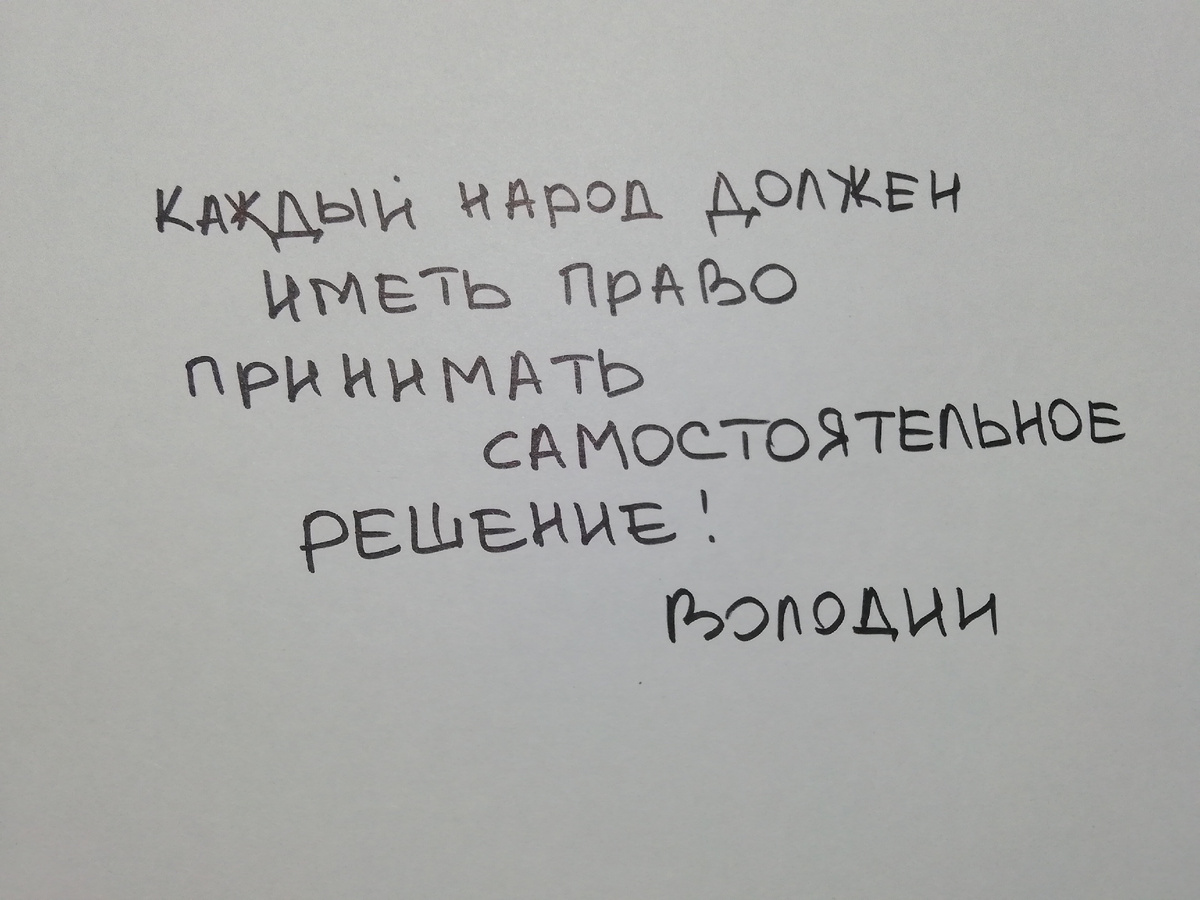 КАЖДЫЙ НАРОД ДОЛЖЕН
ИМЕТЬ ПРАВО
ПРИНИМАТЬ
САМОСТОЯТЕЛЬНОЕ
РЕШЕНИЕ!
ВОЛОДИН